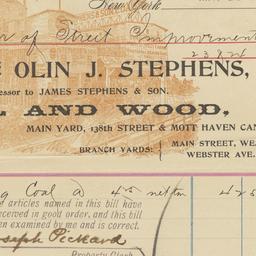 New York
of Street Improvement
OLIN J. STEPHENS,
essor to JAMES STEPHENS & SON.
AND WOOD,
MAIN YARD, 138th STREET & MOTT HAVEN CAN
BRANCH YARDS:
MAIN STREET, WE
WEBSTER AVE.
Coal a 45 net tm 425
e articles named in this bill have
eceived in good order, and this bill
en examined by me and is correct.
oseph Pickard
Property Clerk